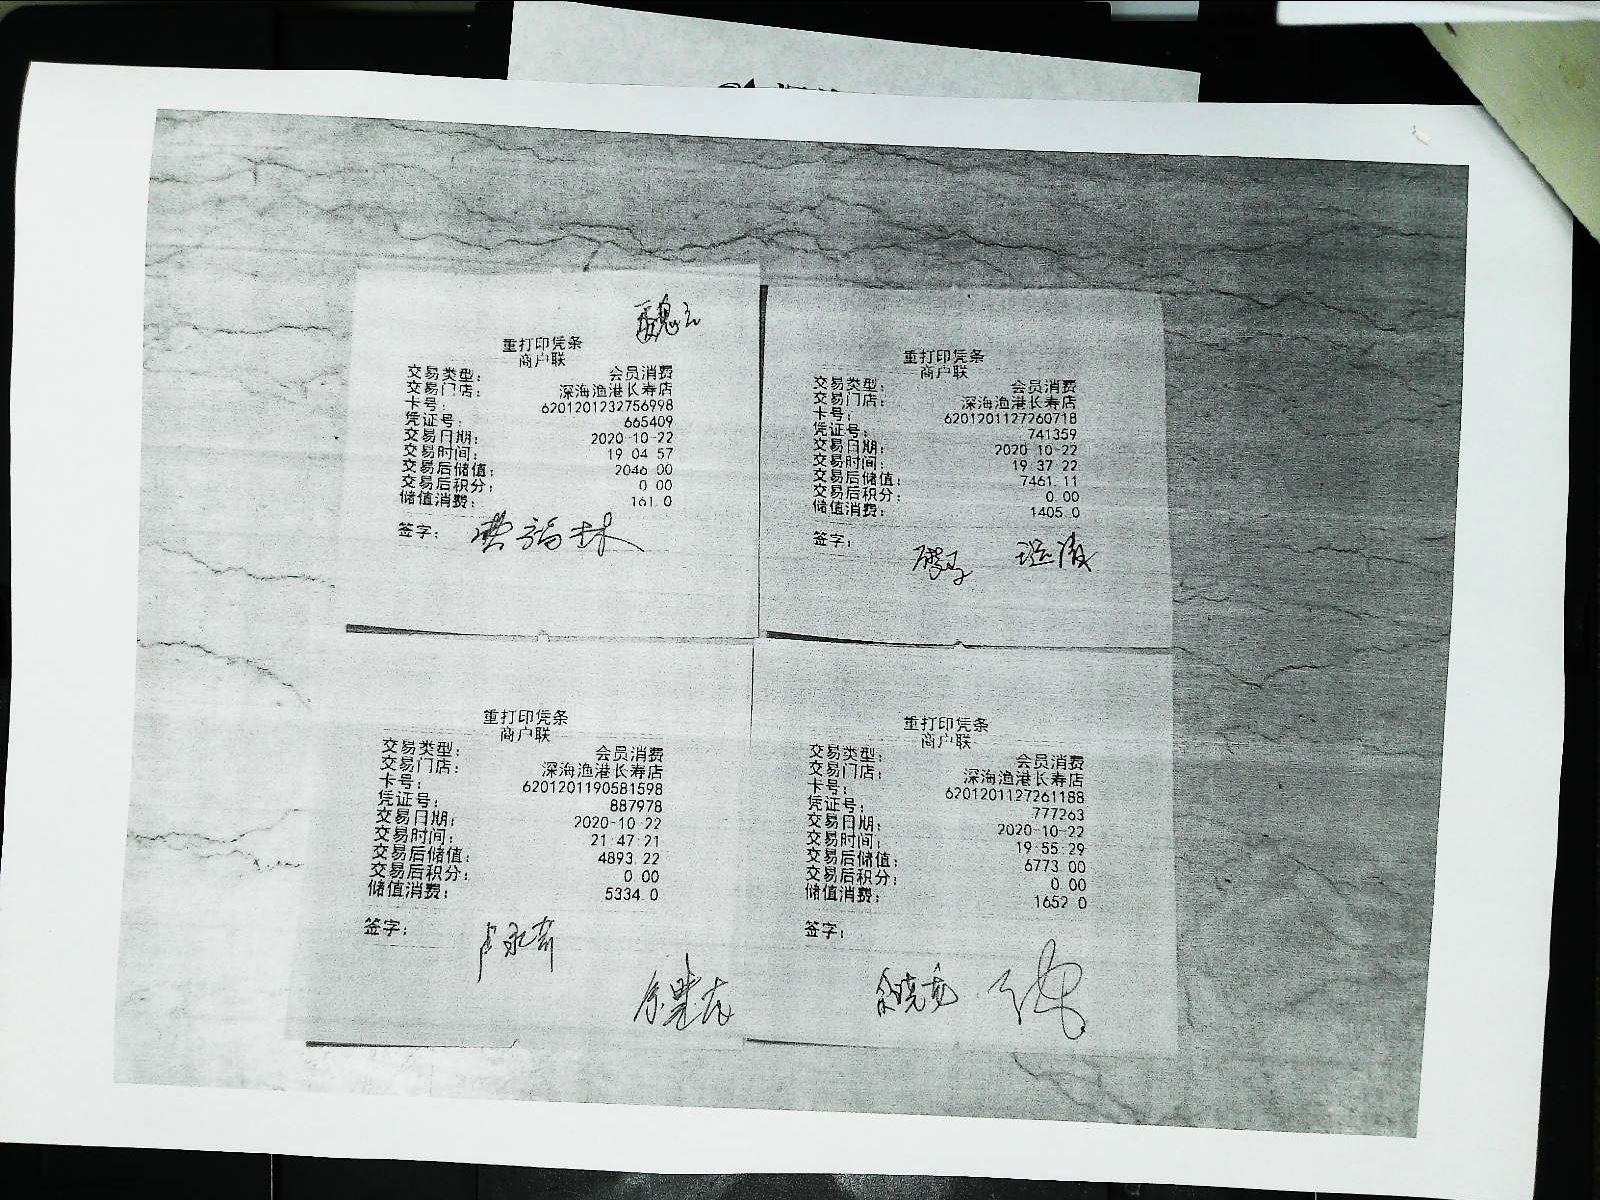 重打印凭条
商户联
交易类型: 会员消费
交易门店: 深海渔港长寿店
卡号: 6201201232756998
凭证号: 665409
交易日期: 2020-10-22
交易时间: 19 04 57
交易后储值: 2046 00
交易后积分: 0 00
储值消费: 161 0
签字: 曹福林
重打印凭条
商户联
交易类型: 会员消费
交易门店: 深海渔港长寿店
卡号: 6201201127260718
凭证号: 741359
交易日期: 2020 10-22
交易时间: 19 37 22
交易后储值: 7461.11
交易后积分: 0.00
储值消费: 1405.0
签字:
重打印凭条
商户联
交易类型: 会员消费
交易门店: 深海渔港长寿店
卡号: 6201201190581598
凭证号: 887978
交易日期: 2020-10 22
交易时间: 21 47 21
交易后储值: 4893 22
交易后积分: 0 00
储值消费: 5334 0
签字:
重打印凭条
商户联
交易类型: 会员消费
交易门店: 深海渔港长寿店
卡号: 6201201127261188
凭证号: 777263
交易日期: 2020-10-22
交易时间: 19 55 29
交易后储值: 6773 00
交易后积分: 0 00
储值消费: 1652 0
签字: